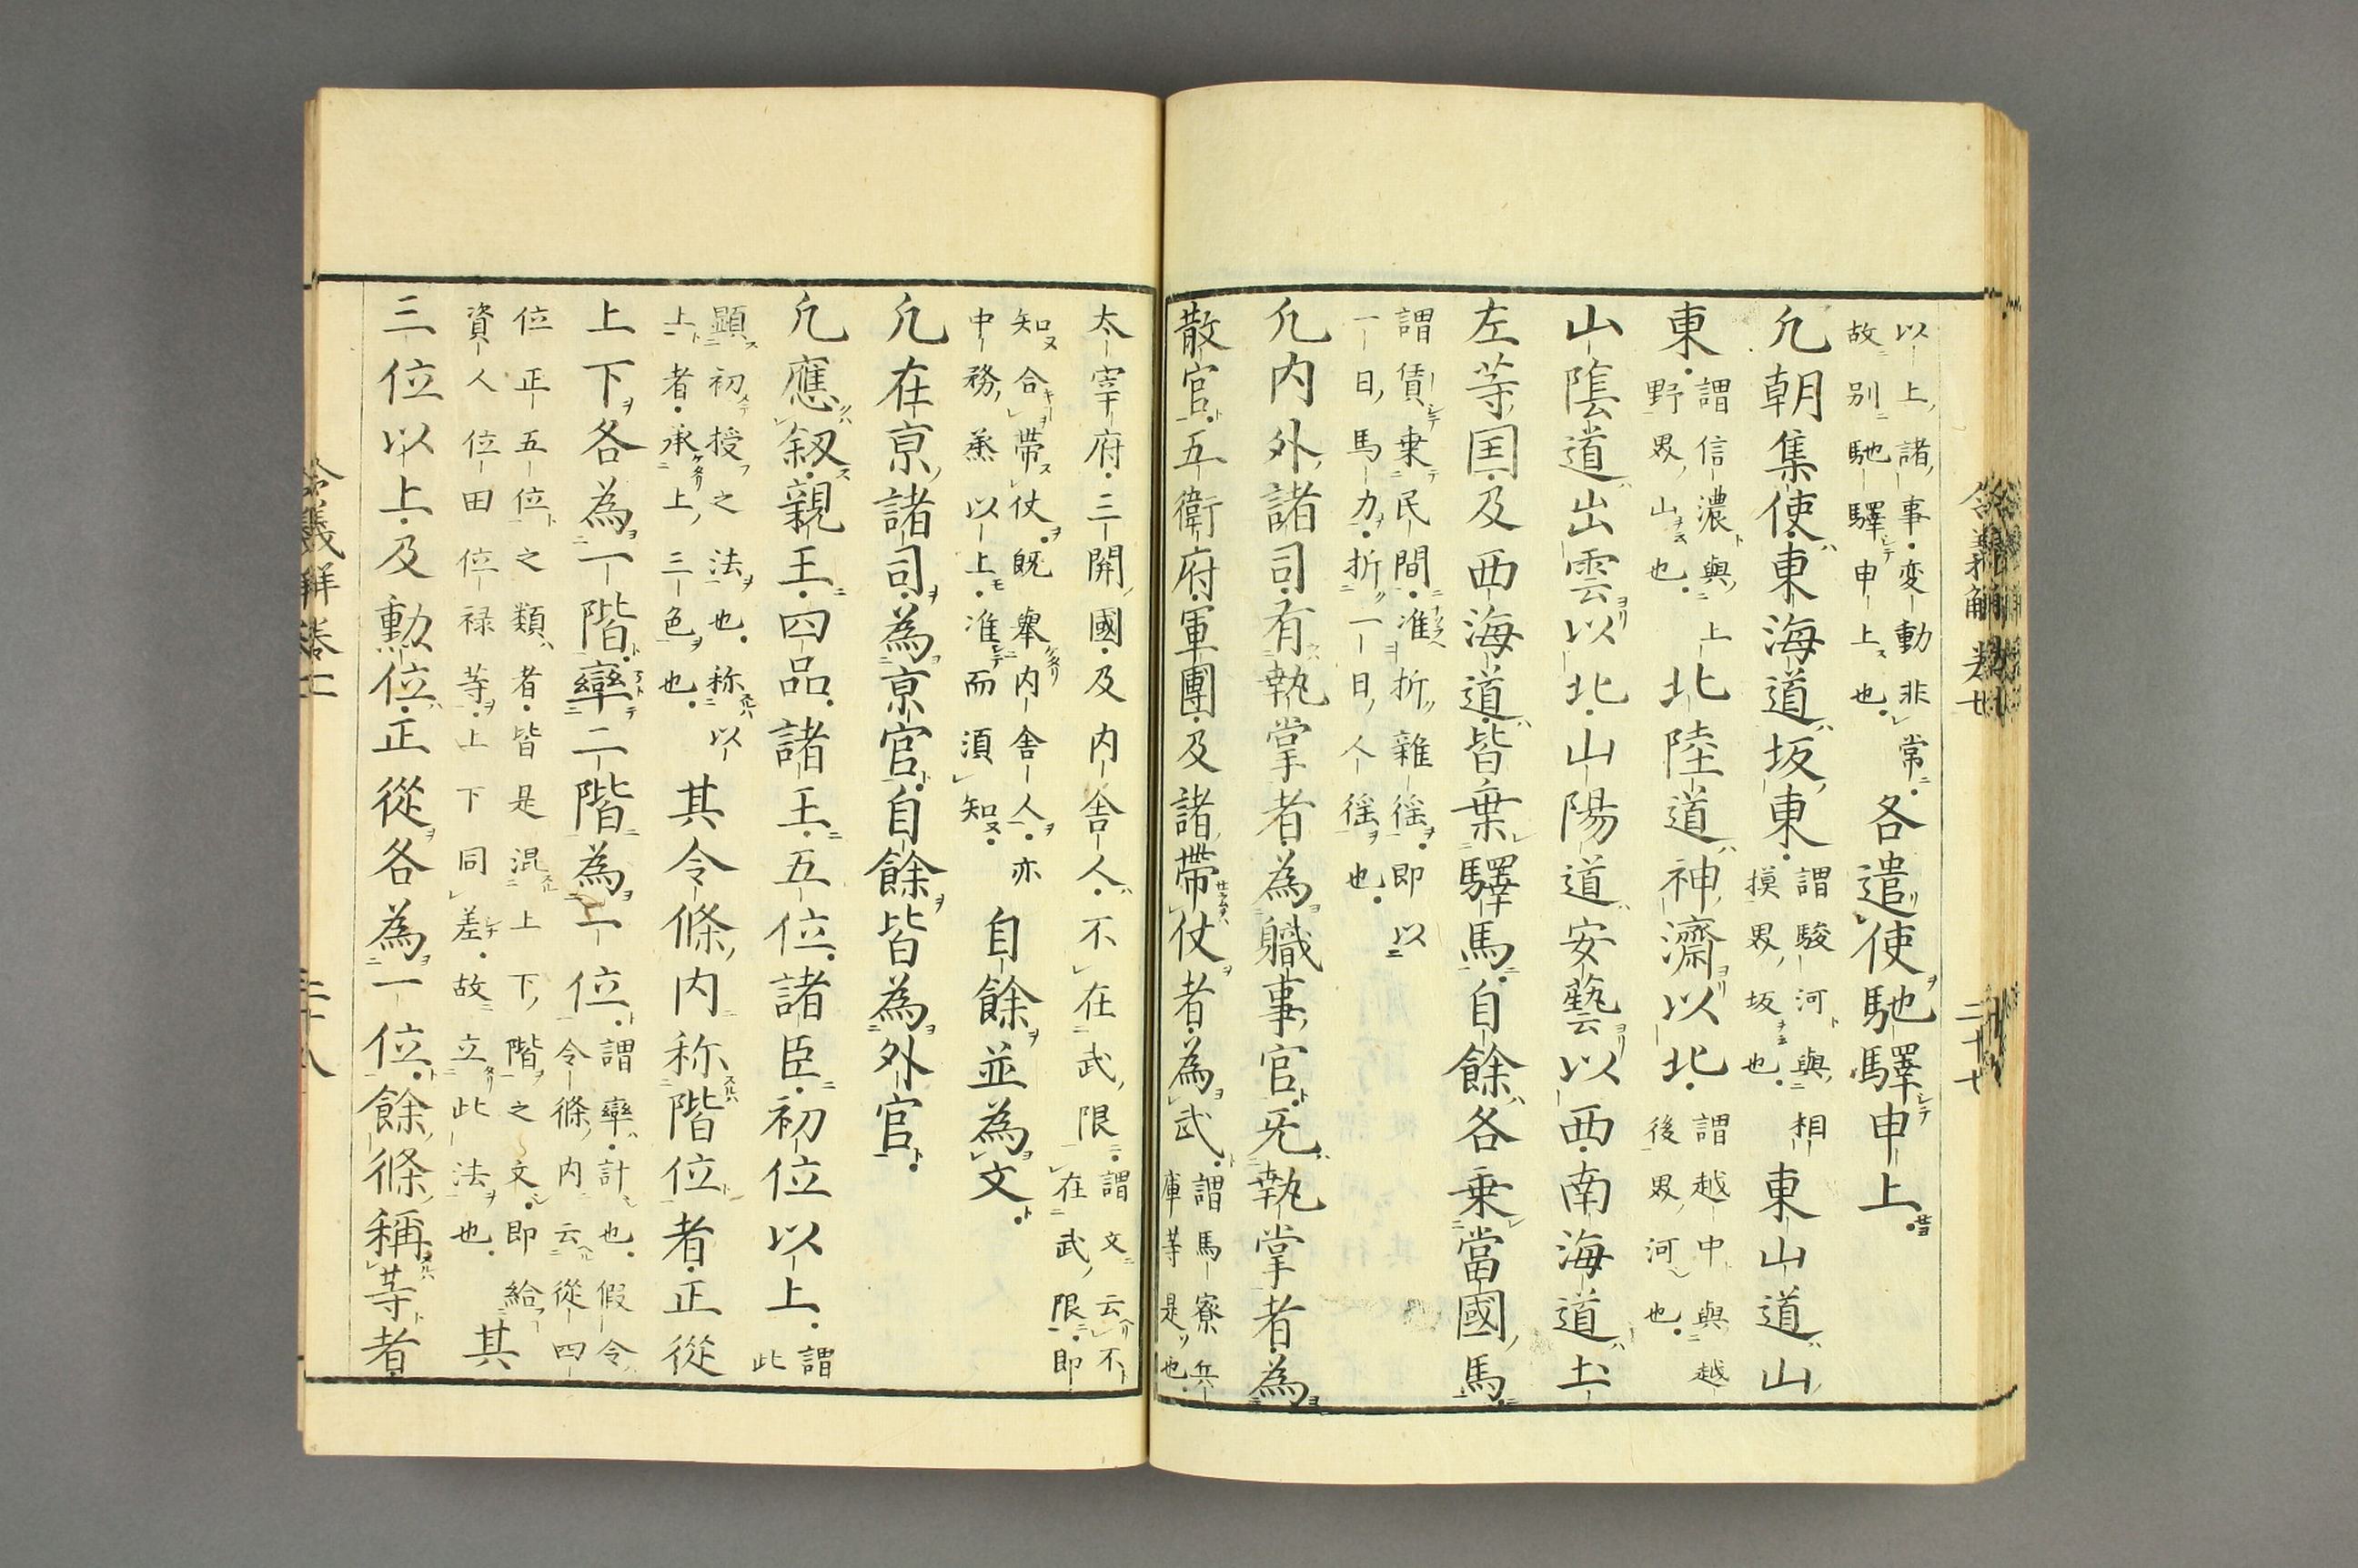 以上諸事変動非常
故別馳驛申上也
各遣使馳驛申上
凢朝集使東海道坂東
謂駿河與相
摸界坂也
東山道山
東
謂信濃與上
野界山也
北陸道神濟以北
謂越中與越
後界河也
山隂道出雲以北山陽道安藝以西南海道土
左等国及西海道皆乗驛馬自餘各乗當國馬
謂賃乗民間准折雜徭即以
一日馬力折一日人徭也
凢内外諸司有執掌者為職事官无執掌者為
散官五衛府軍團及諸帶仗者為武
謂馬寮兵
庫等是也
太宰府三関國及内舎人不在武限
謂文云不
在武限即
知合帶仗既舉内舎人亦
中務兼以上准而須知
自餘並為文
凢在京諸司為京官自餘皆為外官
凢應叙親王四品諸王五位諸臣初位以上
謂
此
顕初授之法也称以
上者承上三色也
其令條内称階位者正從
上下各為一階率二階為一位
謂率計也假令
令條内云從四
位正五位之類者皆是混上下階之文即給
資人位田位禄等上下同差故立此法也
其
三位以上及勳位正從各為一位餘條稱等者
令義解巻十
二十七
令義解巻十
二十八